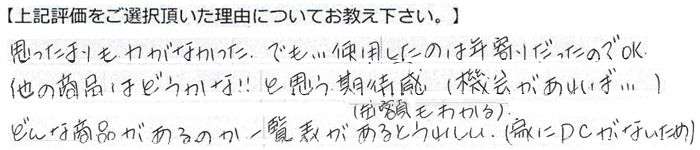 【上記評価をご選択頂いた理由についてお教え下さい。】
思ったよりもわがなかった。でも…使用したのは年寄りだったのでOK.
他の商品はどうかな!!と思う期待感（機会があれば…）
（金額もわかる）.
どんな商品があるのか一覧表があるとうれしい.（家にPCがないため）